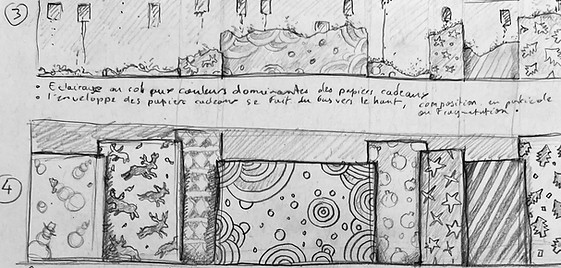 3
• Eclairage au sol aux couleurs dominantes des papiers cadeaux
• l'enveloppe des papiers cadeaux se fait du bas vers le haut, composition en particule
ou fragmentation.
4